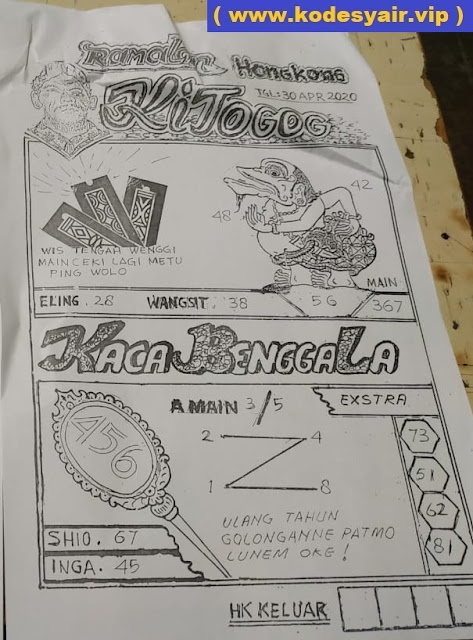 ( www.kodesyair.vip )
RAMALAN HONGKONG
TGL: 30 APR 2020
KI TOGOG
42
48
WIS TENGAH WENGGI
MAIN CEKI LAGI METU
PING WOLO
MAIN
ELING. 28 WANGSIT. 38 56 367
KACA BENGGALA
A MAIN 3/5 EXSTRA
456
2 4
73
51
1 8
62
ULANG TAHUN
GOLONGANNE PATMO
LUNEM OKE !
81
SHIO. 67
INGA. 45
HK KELUAR